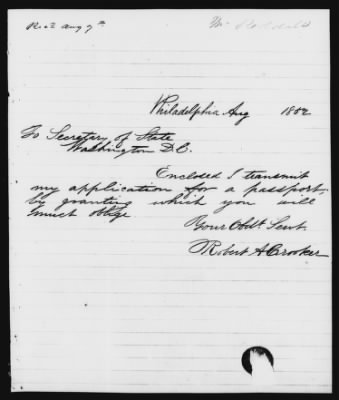 Rec'd Aug 7th
Philadelphia Aug 1852
To Secretary of State
Washington D.C.
Enclosed I transmit
my application for a passport,
by granting which you will
much oblige
Your Obdt. Servt.
Robert A Crooker